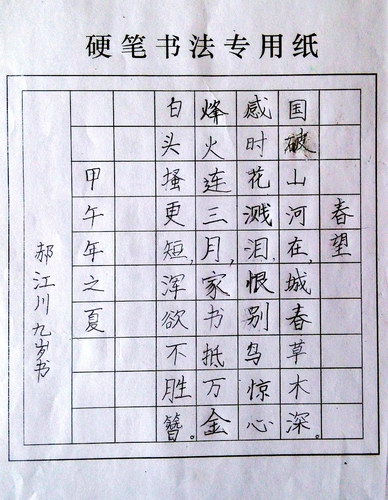 硬笔书法专用纸
春望
国破山河在,城春草木深。
感时花溅泪,恨别鸟惊心
烽火连三月,家书抵万金
白头搔更短,浑欲不胜簪。
甲午年之夏
郝江川九岁书